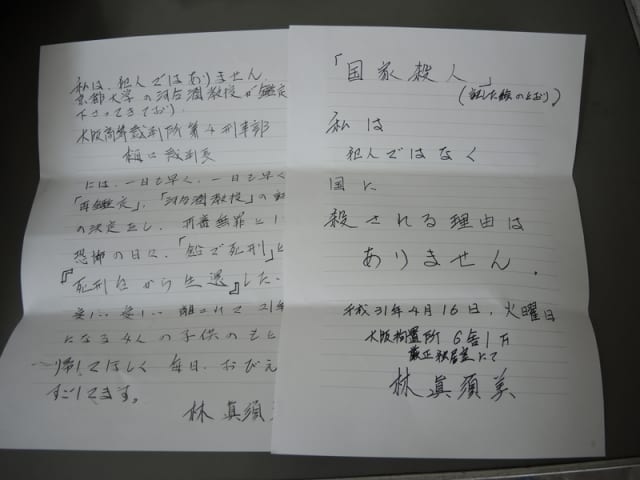 私は、犯人ではありません。
京都大学の河合潤教授が鑑定
下さってきており
大阪高等裁判所第4刑事部
樋口裁判長
には、一日も早く、一日も早く
「再鑑定」、「河合潤教授」の
の決定をし、再審無罪と
恐怖の日に、「鉛で死刑」
『死刑台から生還』した
なる4人の子供のもと
帰してほしく毎日、おびえ
すごしてます。
林 眞須
「国家殺人」
私は
犯人ではなく
国に
殺される理由は
ありません。
平成31年4月16日、火曜日
大阪拘置所 6舎1下
にて
林 眞須美